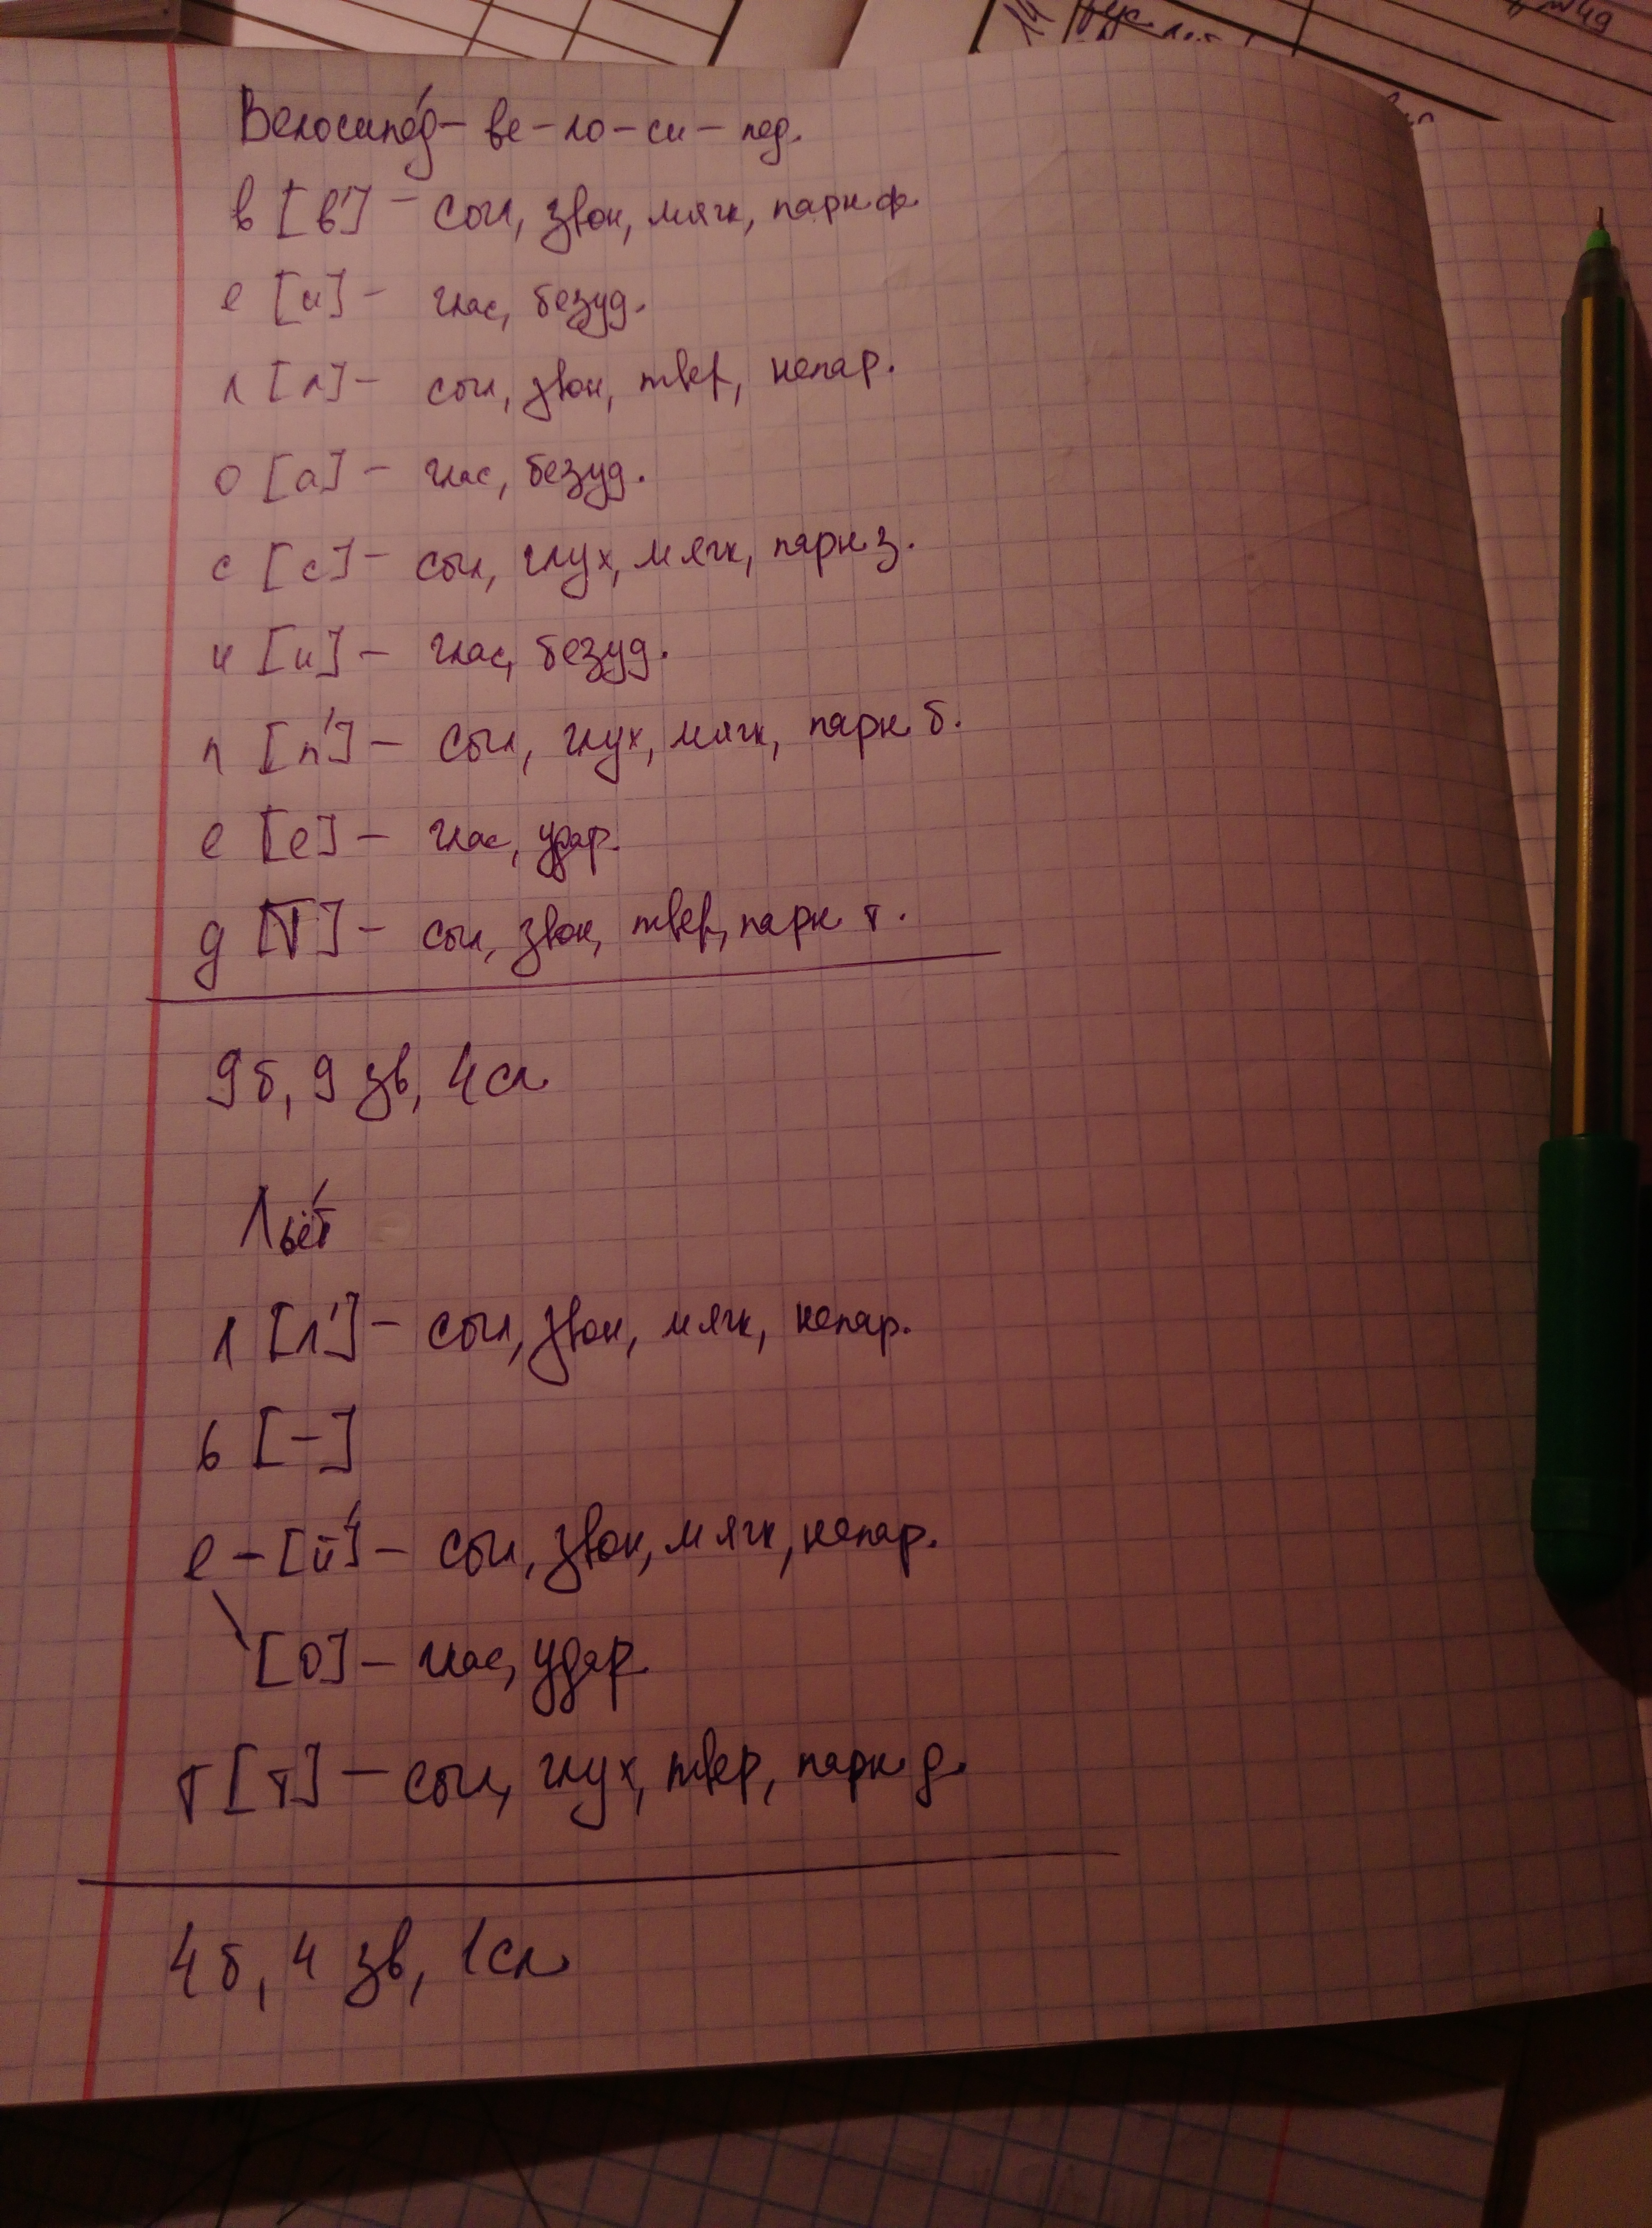 14
рус
№49
Велосипе́д – ве – ло – си – пед.
в [в'] – согл, звон, мягк, парн ф.
е [и] – глас, безуд.
л [л] – согл, звон, твер, непар.
о [а] – глас, безуд.
с [с] – согл, глух, мягк, парн з.
и [и] – глас, безуд.
п [п'] – согл, глух, мягк, парн б.
е [е] – глас, удар.
д [т] – согл, звон, твер, парн т.
9 б, 9 зв, 4 сл
Льёт
л [л'] – согл, звон, мягк, непар.
ь [–]
е – [й'] – согл, звон, мягк, непар.
[о] – глас, удар.
т [т] – согл, глух, твер, парн д.
4 б, 4 зв, 1 сл